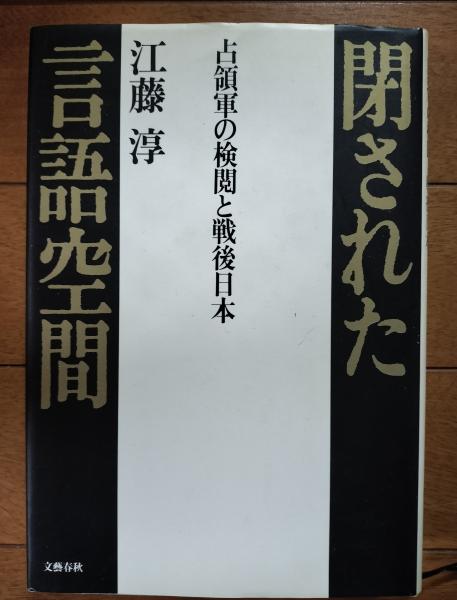 閉された
占領軍の検閲と戦後日本
江藤 淳
言語空間
文藝春秋